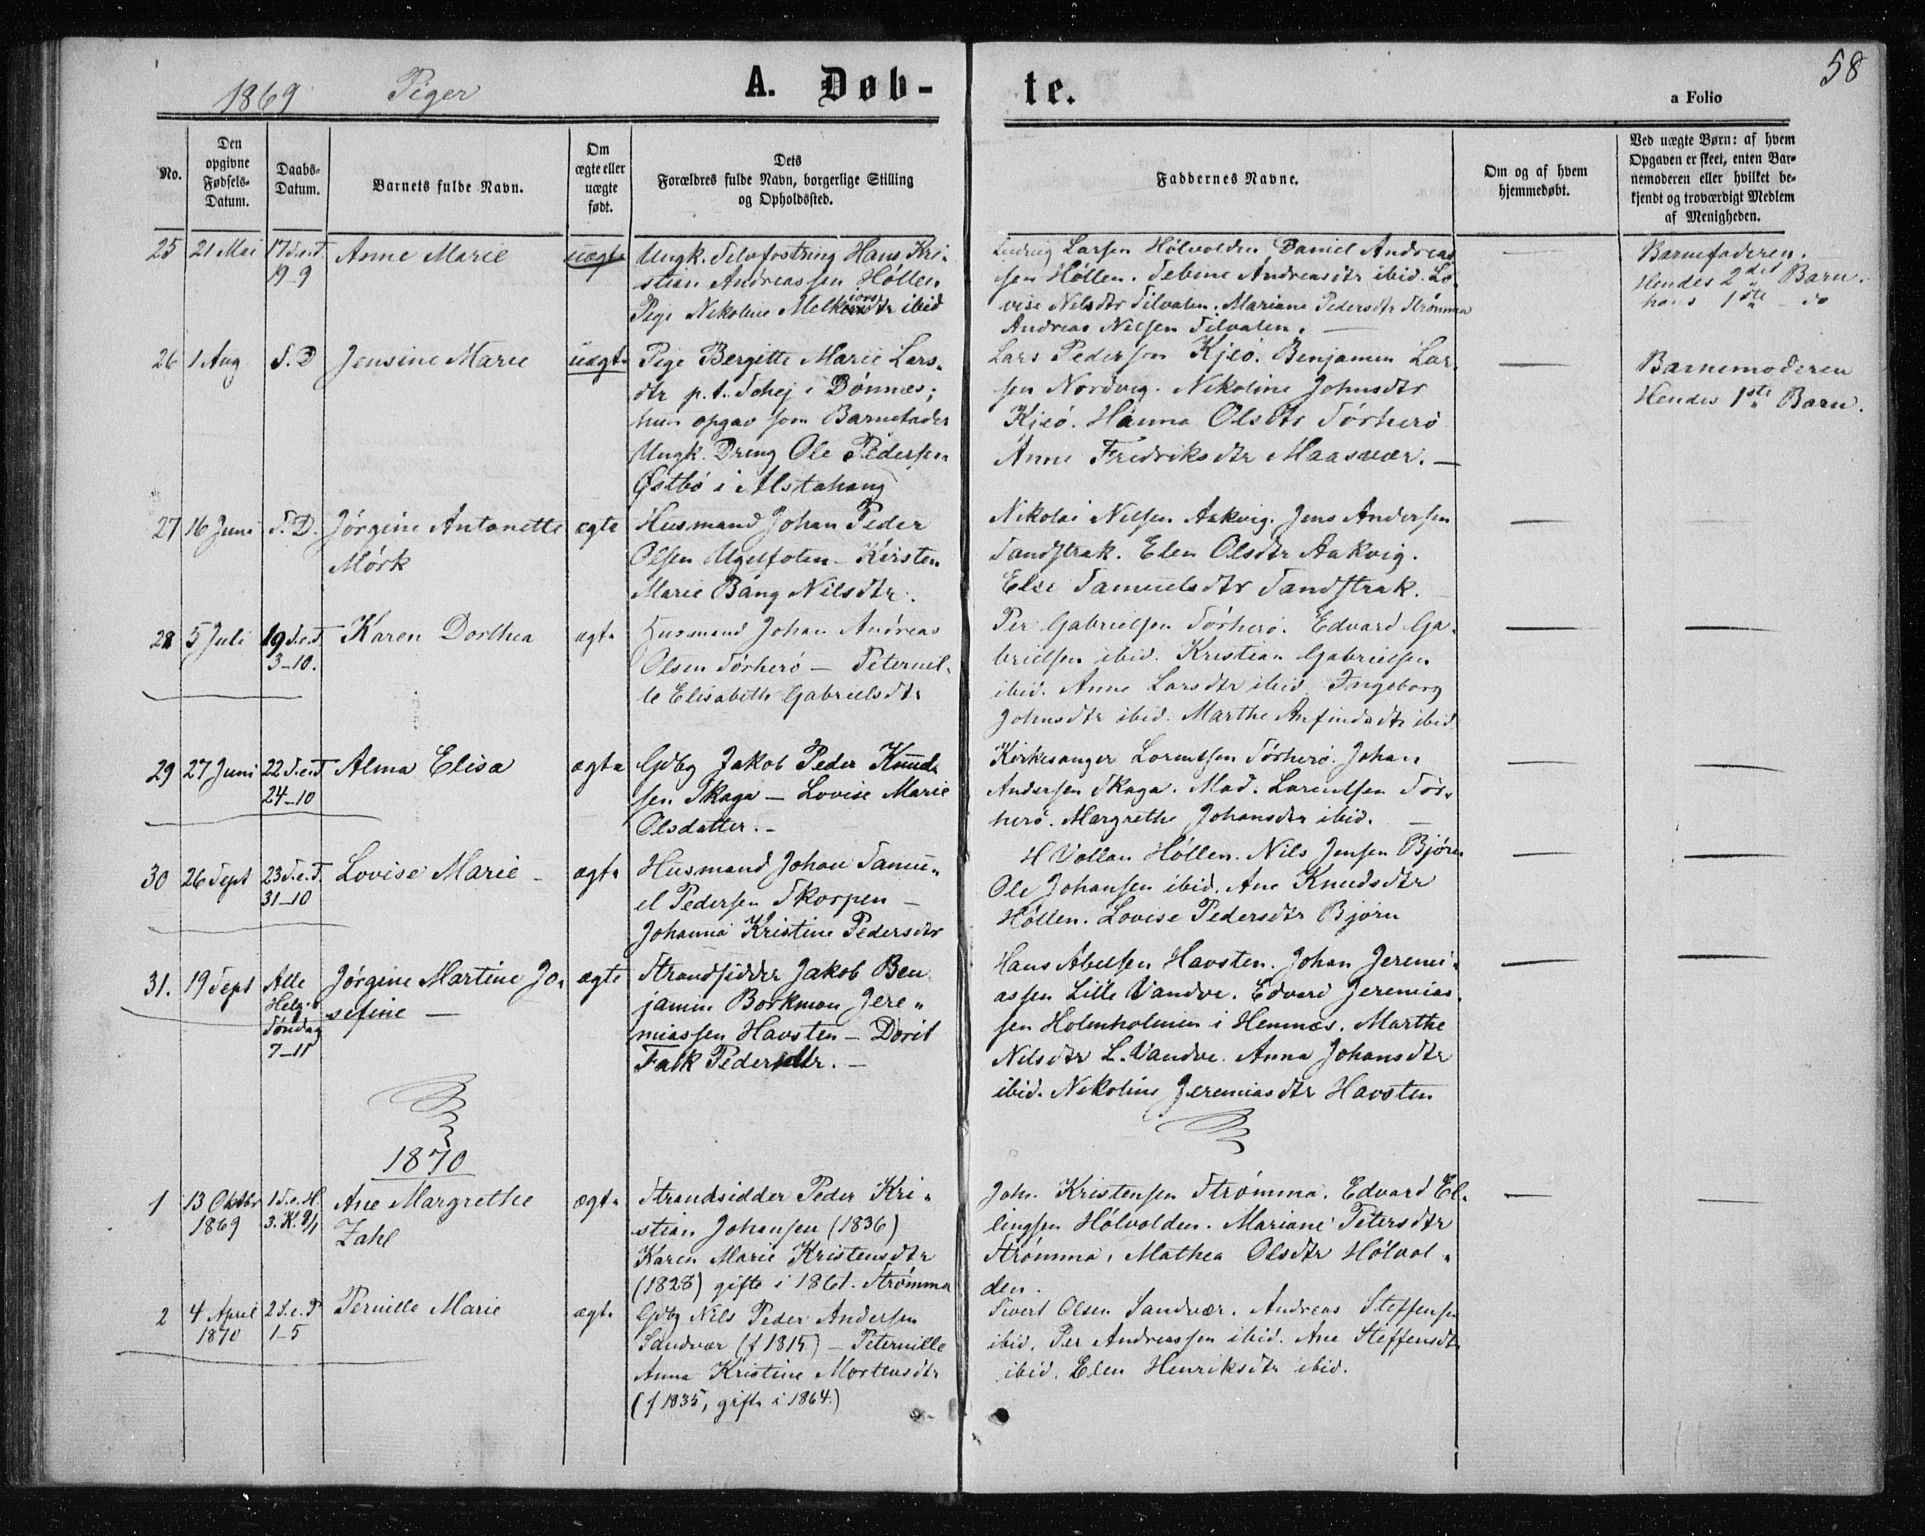 58
1869 Piger A. Døb-te.
a Folio
No.
Den opgivne Fødsels-Datum.
Daabs-Datum.
Barnets fulde Navn.
Om ægte eller uægte født.
Dets Forældres fulde Navn, borgerlige Stilling og Opholdssted.
Faddernes Navne.
Om og af hvem hjemmedøbt.
Ved uægte Børn: af hvem Opgaven er skeet, enten Barnemoderen eller hvilket bekjendt og troværdigt Medlem af Menigheden.
25 21 Mai 17 S.e.T. 19-9
Anne Marie
uægte
Ungk. Selvfostring Hans Kri-
stian Andreassen Høllen
Pige Nikoline Melkiorsdtr ibid
Ludvig Larsen Hølvolden Daniel Andreas
sen Høllen. Sebine Andreasdtr ibid. Lo-
vise Nilsdtr Tilvalen. Mariane Pedersdtr Strømma
Andreas Nilsen Tilvalen. —
—
Barnefaderen.
Hendes 2den Barn.
hans 1ste - do
26 1 Aug S.D
Jensine Marie
uægte
Pige Bergitte Marie Lars-
dtr p.t. Sohej i Dønnes;
hun opgav som Barnefader
Ungk. Dreng Ole Pedersen
Østbø i Alstahaug
Lars Pedersen Kjeö. Benjamin Lar-
sen Nordvig. Nikoline Johnsdtr
Kjeö. Hanna Olsdtr Tørherö
Anne Fredriksdtr Maasvær. —
—
Barnemoderen
Hendes 1ste Barn.
27 16 Juni S.D.
Jørgine Antonette
Mørk
ægte
Husmand Johan Peder
Olsen Ugelfoten - Kirsten
Marie Bang Nilsdtr.
Nikolai Nilsen Aakvig. Jens Andersen
Sandstrak. Elen Olsdtr Aakvig.
Else Samuelsdtr Sandstrak.
—
28 5 Juli 19 S.e.T 3-10.
Karen Dorthea
ægte
Husmand Johan Andreas
Olsen Tørherö — Peternil-
le Elisabeth Gabrielsdtr
Per Gabrielsen Tørherö. Edvard Ga-
brielsen ibid. Kristian Gabrielsen
ibid. Anne Larsdtr ibid. Ingeborg
Johnsdtr ibid. Marthe Arfindsdtr ibid
— —
29 27 Juni 22 S.e.T 24-10
Alma Elisa
ægte
Gdbg Jakob Peder Knud-
sen Skaga — Lovise Marie
Olsdatter. -
Kirkesanger Lorentsen Tørherö. Johan
Andersen Skaga. Mad. Lorentsen Tør-
herö. Margrethe Johansdtr ibid. —
— —
30 26 Sept 23 S.e.T. 31-10
Lovise Marie -
ægte
Husmand Johan Samu-
el Pedersen Skorpen —
Johanna Kristine Pedersdtr
H Vollan Høllen. Nils Jensen Bjørn
Ole Johansen ibid. Ane Knudsdtr
Høllen. Lovise Pedersdtr Bjørn
— —
31. 19 Sept Alle Helg.s Søndag 7-11
Jørgine Martine Jo-
sefine —
ægte
Strandsidder Jakob Ben
jamin Borkman Jere-
miassen Havsten — Dorit
Falk Pedersdtr. —
Hans Abelsen Havsten. Johan Jeremi-
assen Lille Vandve. Edvard Jeremias-
sen Holmholmen i Hemnæs. Marthe
Nilsdtr L. Vandve. Anna Johansdtr
ibid. Nikoline Jeremiasdtr Havsten
— —
1870
1 13 Oktbr 1869 1 S.e.H. 3.K. 9/1
Ane Margrethe
Zahl
ægte
Strandsidder Peder Kri-
stian Johansen (1836)
Karen Marie Kristensdtr
(1828) gifte i 1861. Strømma
Joh. Kristensen Strømma. Edvard El-
lingsen Hølvolden. Mariane Petersdtr
Strømma, Mathea Olsdtr Hølvol-
den.
— —
2 4 April 1870 2 S.e.P 1-5
Pernille Marie
ægte
Gdbg Nils Peder Andersen
Sandvær (f 1815) — Peternille
Anna Kristine Mortensdtr
(f 1835, gifte i 1864.)
Sivert Olsen Sandvær. Andreas Steffensen
ibid. Per Andreassen ibid. Ane Steffensdtr
ibid. Elen Henriksdtr ibid.